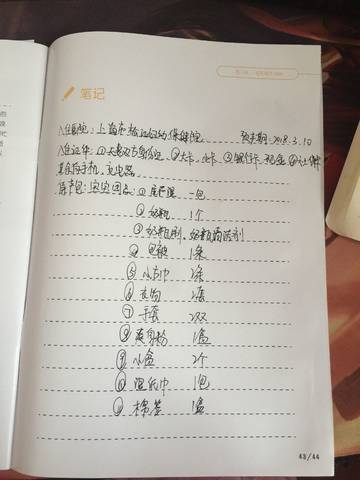 笔记
入住医院：上海市松江区妇幼保健院 预产期：2018.3.10
入院证件：①夫妻双方身份证、②大卡、小卡、③银行卡、现金
其它：手机、充电器
待产包：宝宝用品：① 尿不湿 一包
② 奶瓶 1个
③ 奶瓶刷、奶瓶清洁剂
④ 包被 1条
⑤ 小方巾 2条
⑥ 衣物 2套
⑦ 手套 2双
⑧ 爽身粉 1盒
⑨ 小盆 2个
⑩ 湿纸巾 1包
⑪ 棉签 1盒
43/44